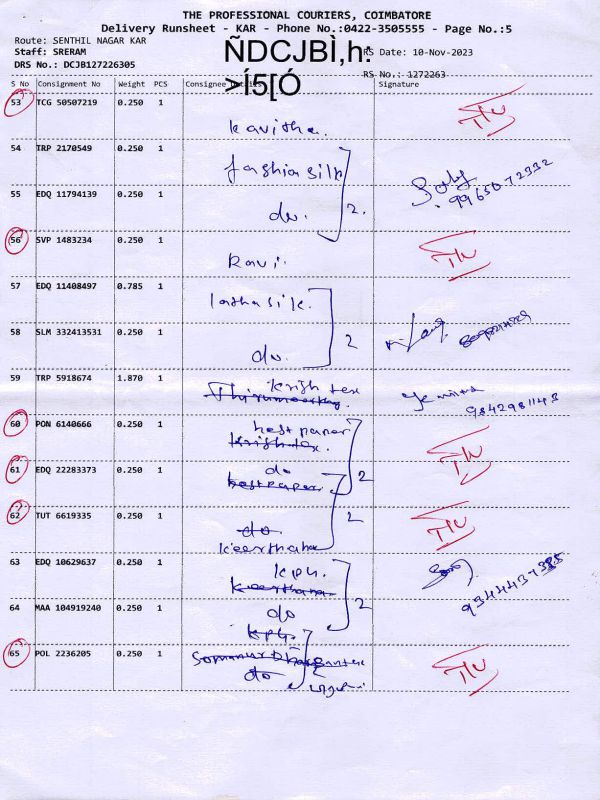 THE PROFESSIONAL COURIERS, COIMBATORE
Delivery Runsheet - KAR - Phone No.:0422-3505555 - Page No.:5
Route: SENTHIL NAGAR KAR
Staff: SRERAM RS Date: 10-Nov-2023
DRS No.: DCJB127226305 RS No.: 1272263
ÑDCJBÌ,h:
>Í5[Ó
S No Consignment No Weight PCS Consignee Details Signature
53 TCG 50507219 0.250 1 Kavitha.
54 TRP 2170549 0.250 1 fashia silk 99650 72332
55 EDQ 11794139 0.250 1 do. 2.
56 SVP 1483234 0.250 1 Ravi.
57 EDQ 11408497 0.785 1 latha silk.
58 SLM 332413531 0.250 1 do. 2
59 TRP 5918674 1.870 1 krish tex 9842981143
60 PON 6140666 0.250 1 best paper krishtex.
61 EDQ 22283373 0.250 1 do best paper. 2
62 TUT 6619335 0.250 1 do keerthana 2
63 EDQ 10629637 0.250 1 kph. keerthana
64 MAA 104919240 0.250 1 do 2
kph.
65 POL 2236205 0.250 1 do